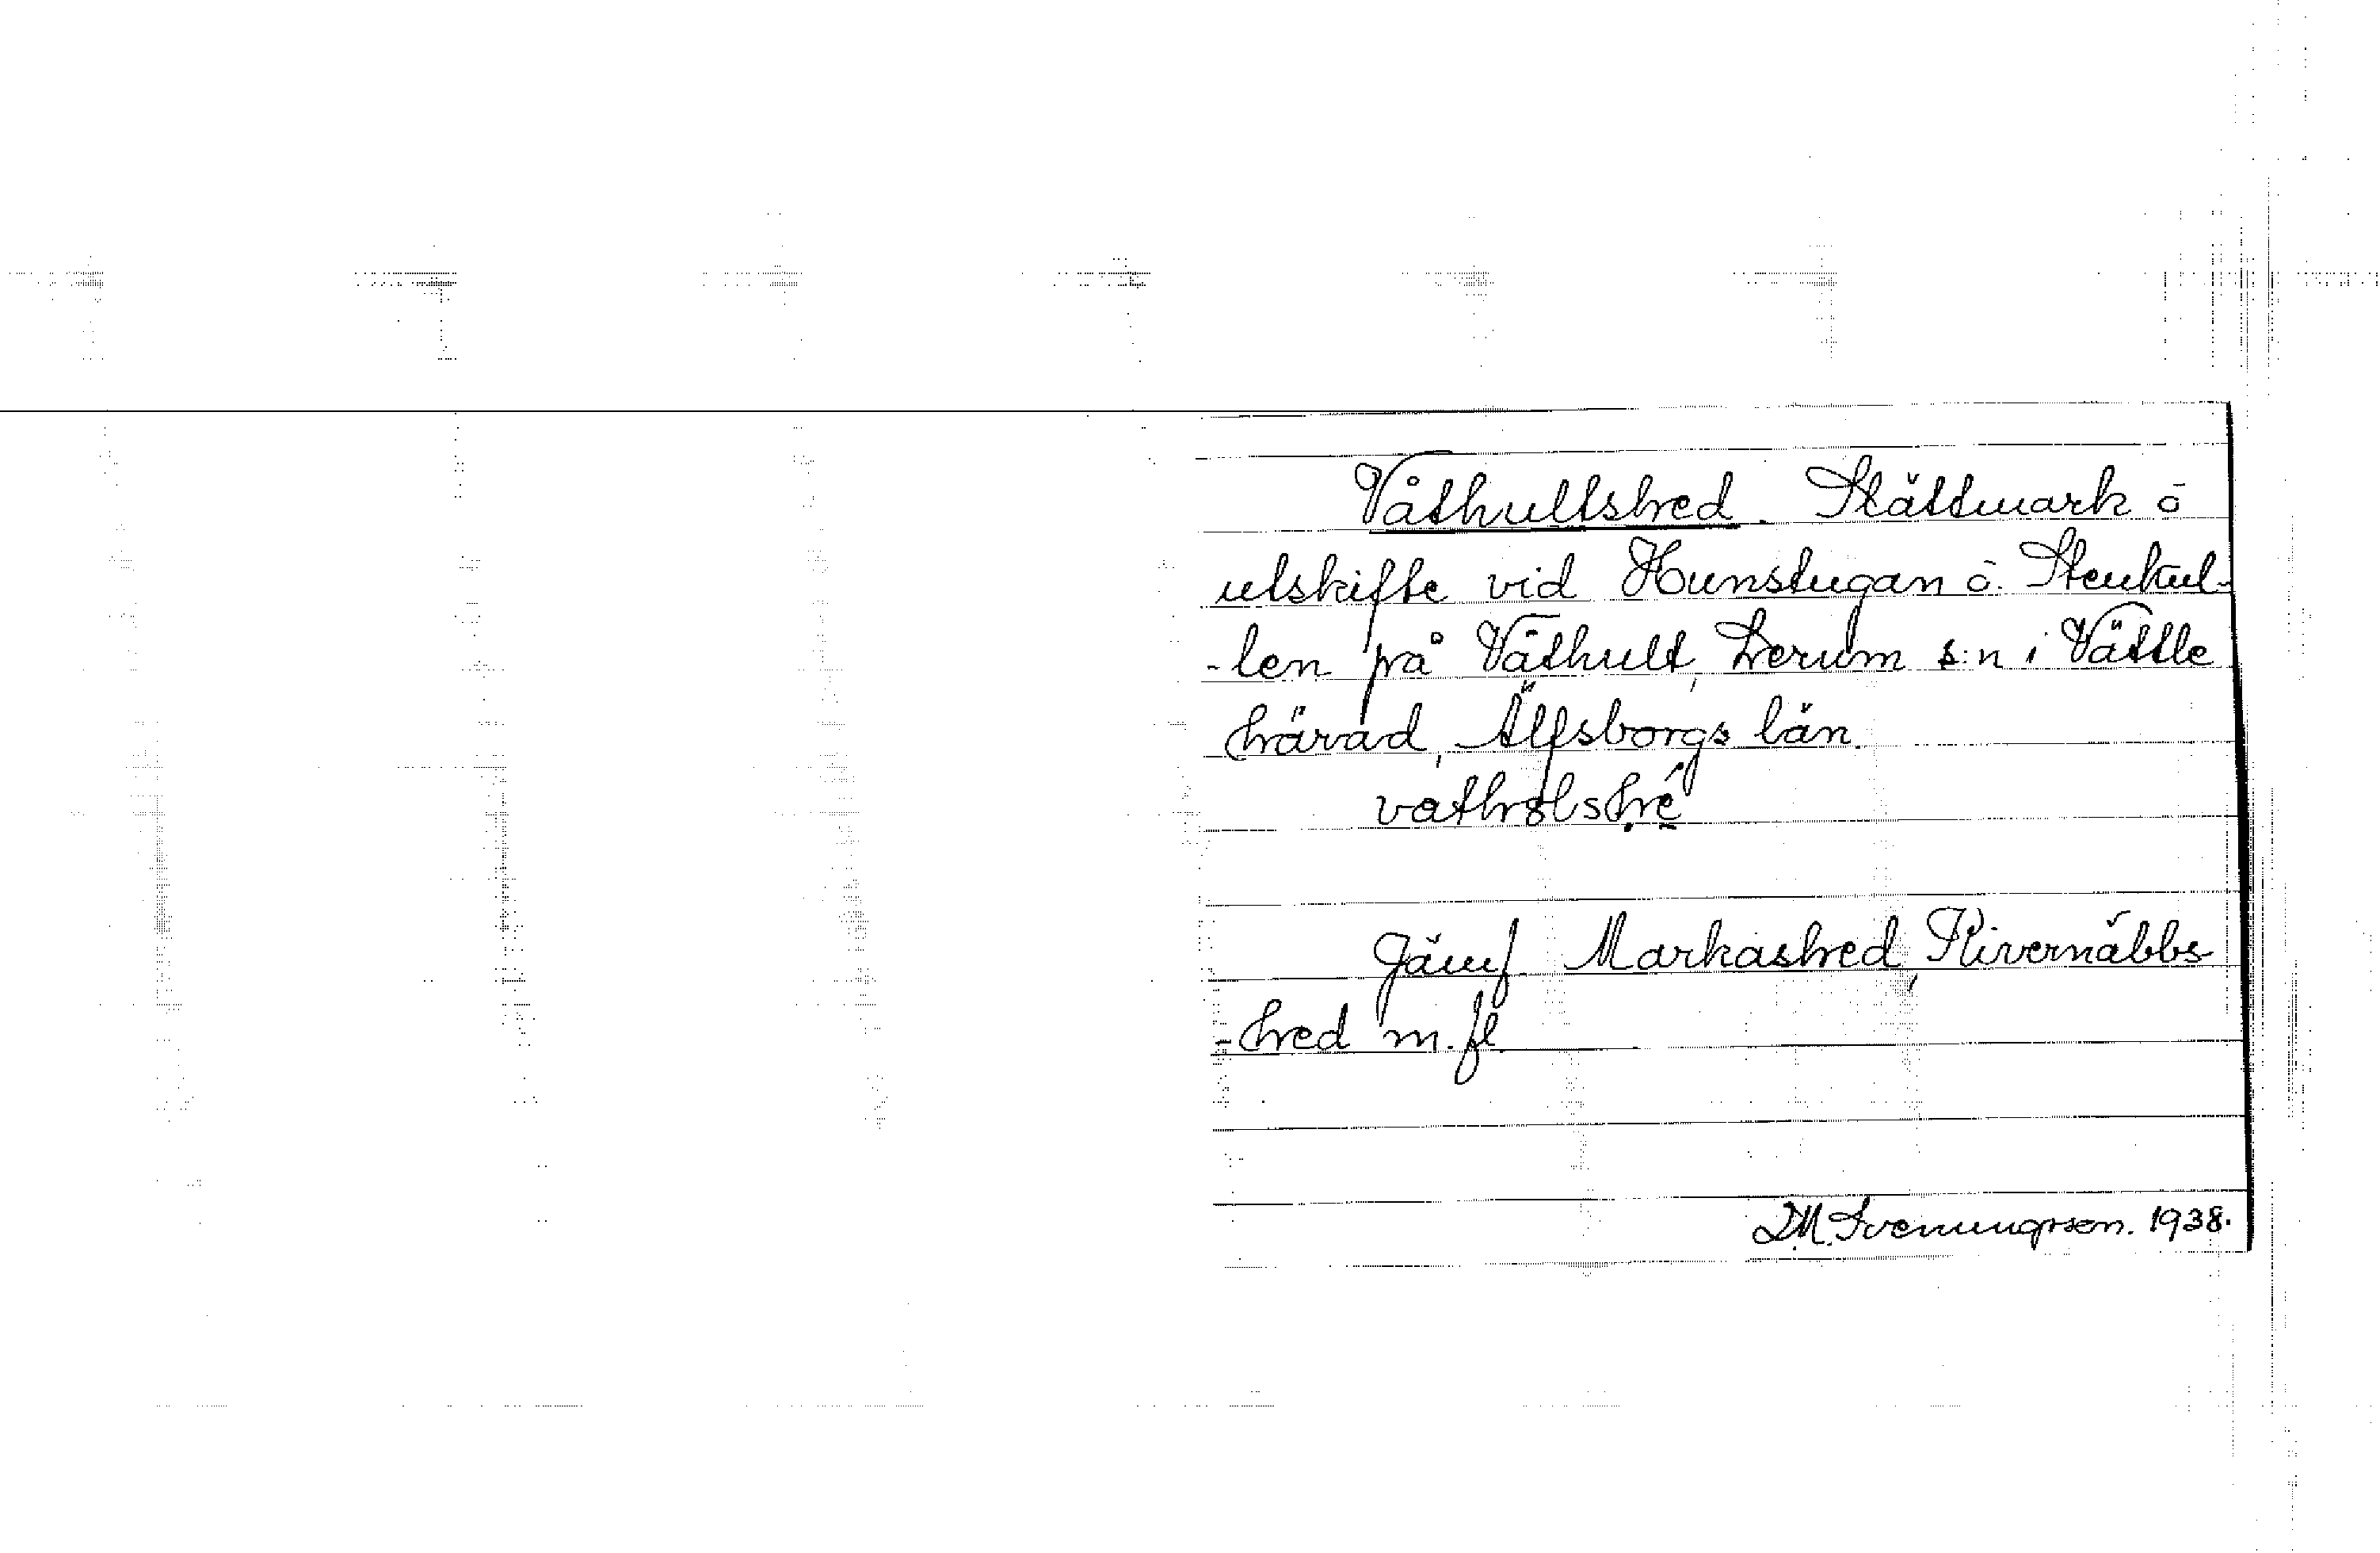 Våthultsbred. Slättmark ō
utskifte vid Hunstugan ō. Stenkul-
-len på Våthult, Lerum s:n i Vättle
härad, Älfsborgs län.
Jämf. Markasbred, Rivernäbbs
-bred m. fl.
D.M. Svenungsson. 1938.